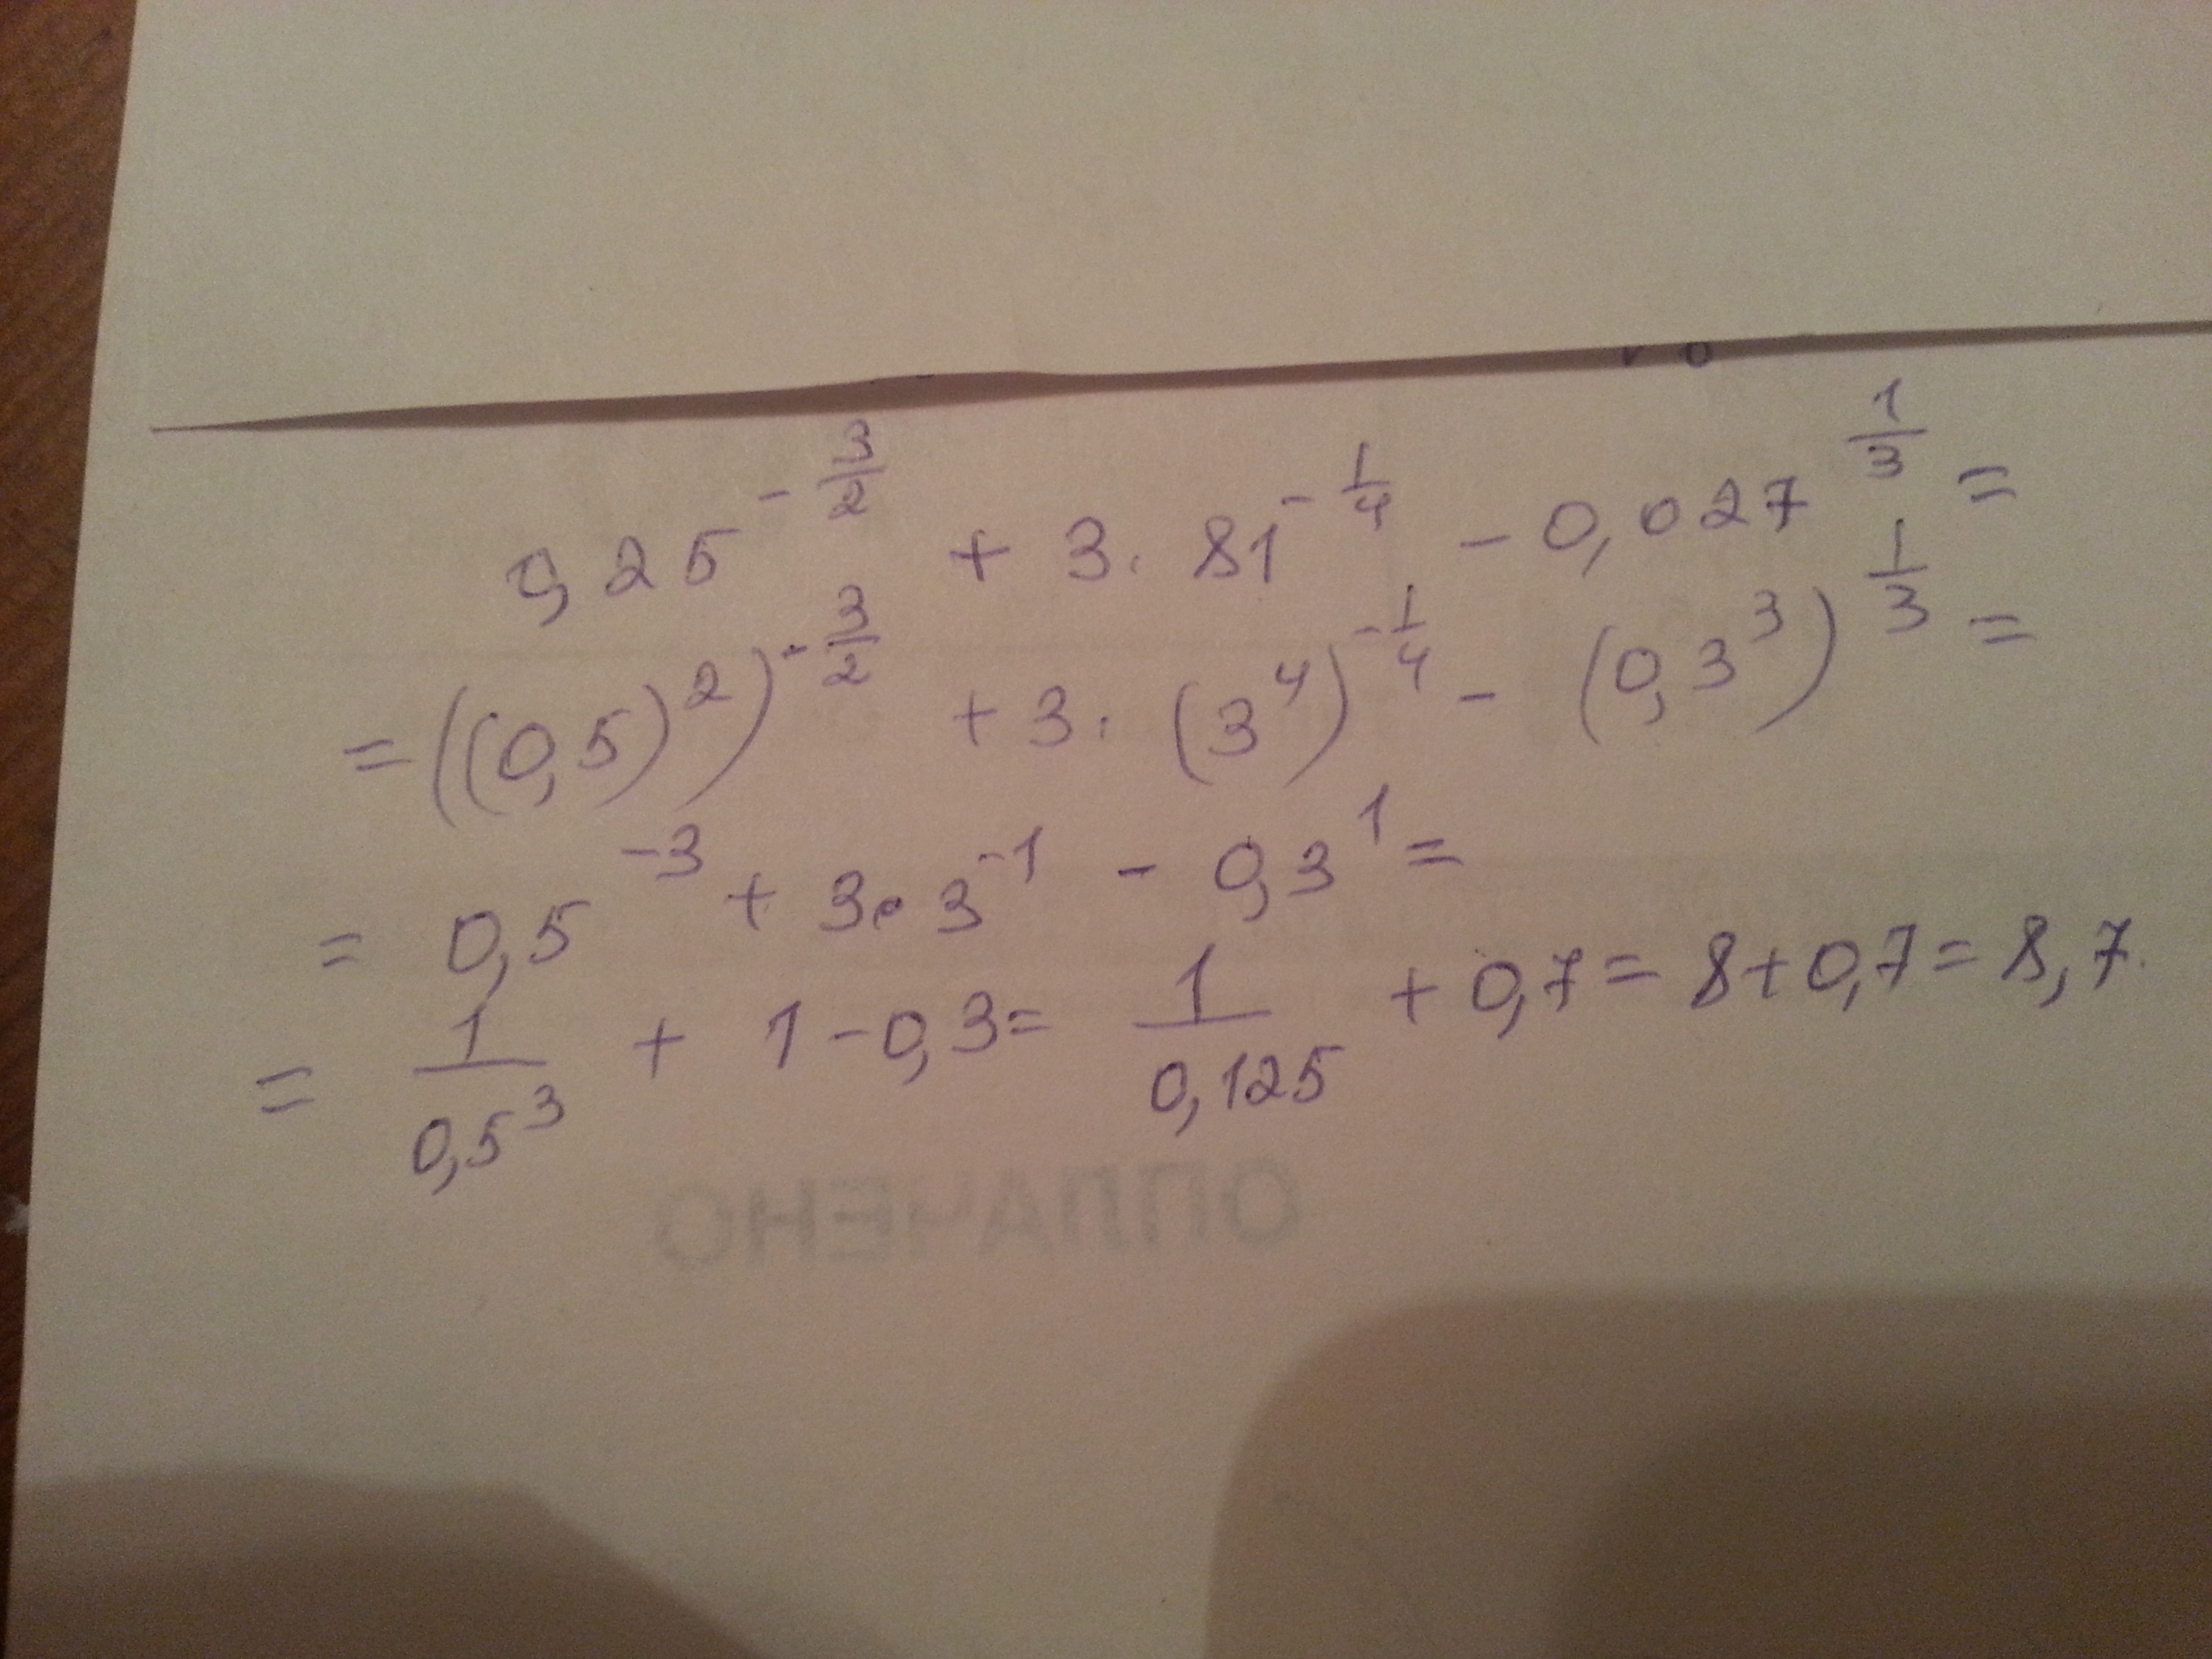 0,25^{-\frac{3}{2}} + 3 \cdot 81^{-\frac{1}{4}} - 0,027^{\frac{1}{3}} =
= ((0,5)^2)^{-\frac{3}{2}} + 3 \cdot (3^4)^{-\frac{1}{4}} - (0,3^3)^{\frac{1}{3}} =
= 0,5^{-3} + 3 \cdot 3^{-1} - 0,3^1 =
= \frac{1}{0,5^3} + 1 - 0,3 = \frac{1}{0,125} + 0,7 = 8 + 0,7 = 8,7.
ОПЛАЧЕНО